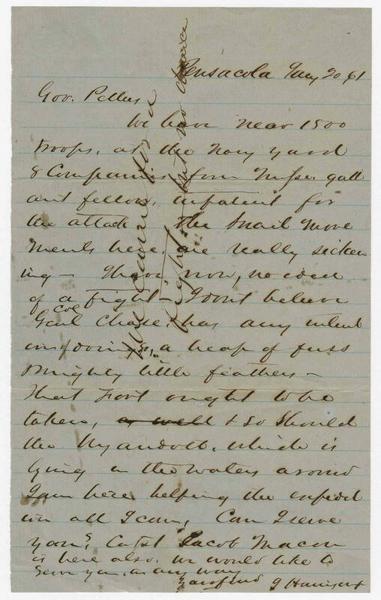 Pensacola Jany 20, 61
Gov. Pettus
We have near 1500
troops, at the Navy yard
8 Companies from Missi gall
ant fellows, impatient for
the attack The Snail Move
ments here are really sicken
ing - I have now, no idea
of a fight - I dont believe
Col Chase, has any intent
in doing so, a heap of fuss
& mighty little feathers -
That Fort ought to be
taken, & so Should
the Wyandott, which is
lying in the waters around
I am here helping the expedi
ion all I can, Can I serve
you? Capt Jacob Macon
is here also. we would like to
Serve you in any way